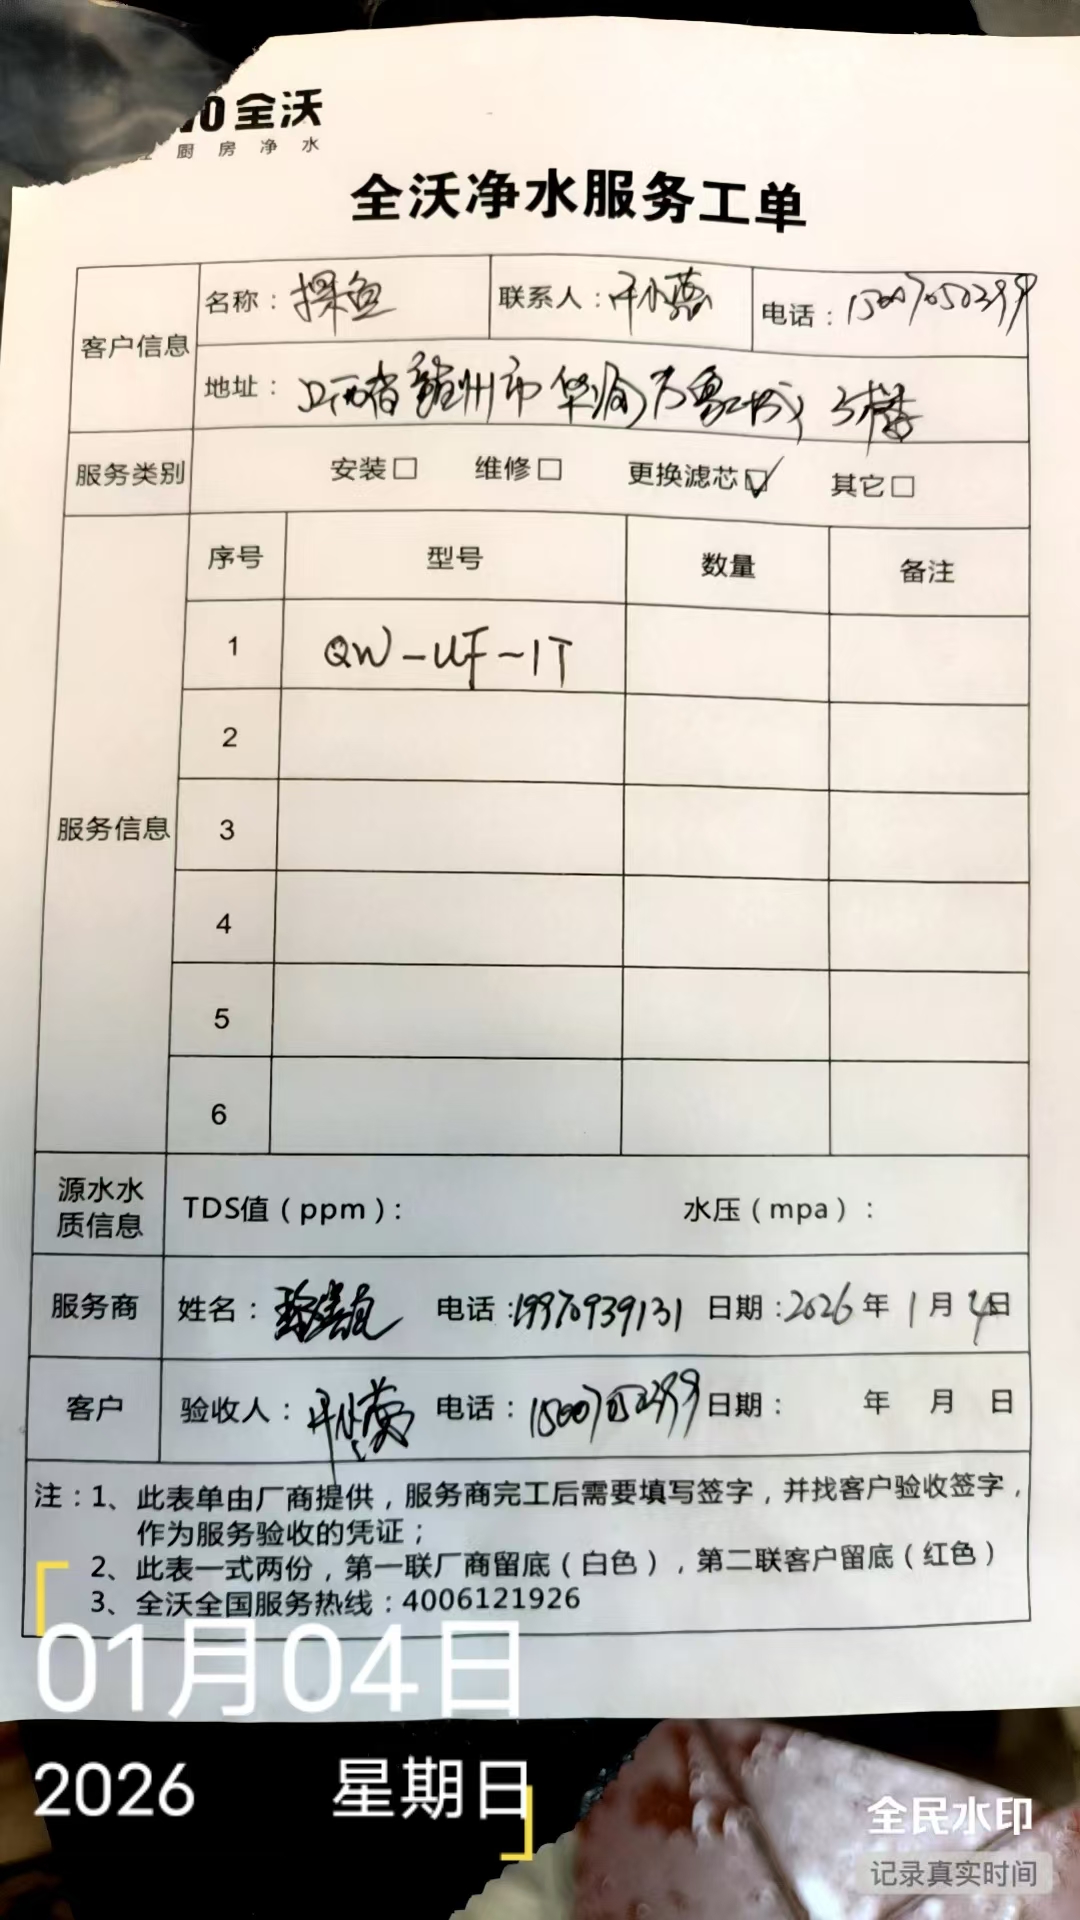 全沃
厨房净水
全沃净水服务工单
客户信息
名称：探鱼 联系人： 电话：15007050399
地址：江西省赣州市华润万象城3楼
服务类别 安装□ 维修□ 更换滤芯☑ 其它□
服务信息
序号 型号 数量 备注
1 QW-UF-1T
2
3
4
5
6
源水水质信息
TDS值（ppm）： 水压（mpa）：
服务商 姓名： 电话：19970939131 日期：2026年1月4日
客户 验收人： 电话：15007050399 日期： 年 月 日
注：1、此表单由厂商提供，服务商完工后需要填写签字，并找客户验收签字，
作为服务验收的凭证；
2、此表一式两份，第一联厂商留底（白色），第二联客户留底（红色）
3、全沃全国服务热线：4006121926
01月04日
2026 星期日
全民水印
记录真实时间